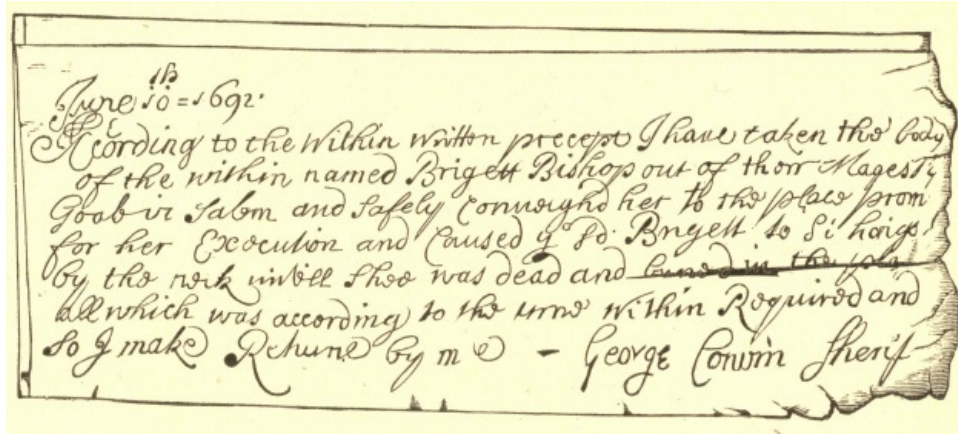 June 10th = 1692.
According to the Within Written precept I have taken the body
of the within named Brigett Bishop out of their Magesty
Goal in Salem and Safely Conveighd her to the place prom
for her Execution and Caused ye sd. Brigett to be hangd
by the neck untill Shee was dead and buried in the pla
all which was according to the time within Required and
So I make Returne by me - George Corwin Sherif